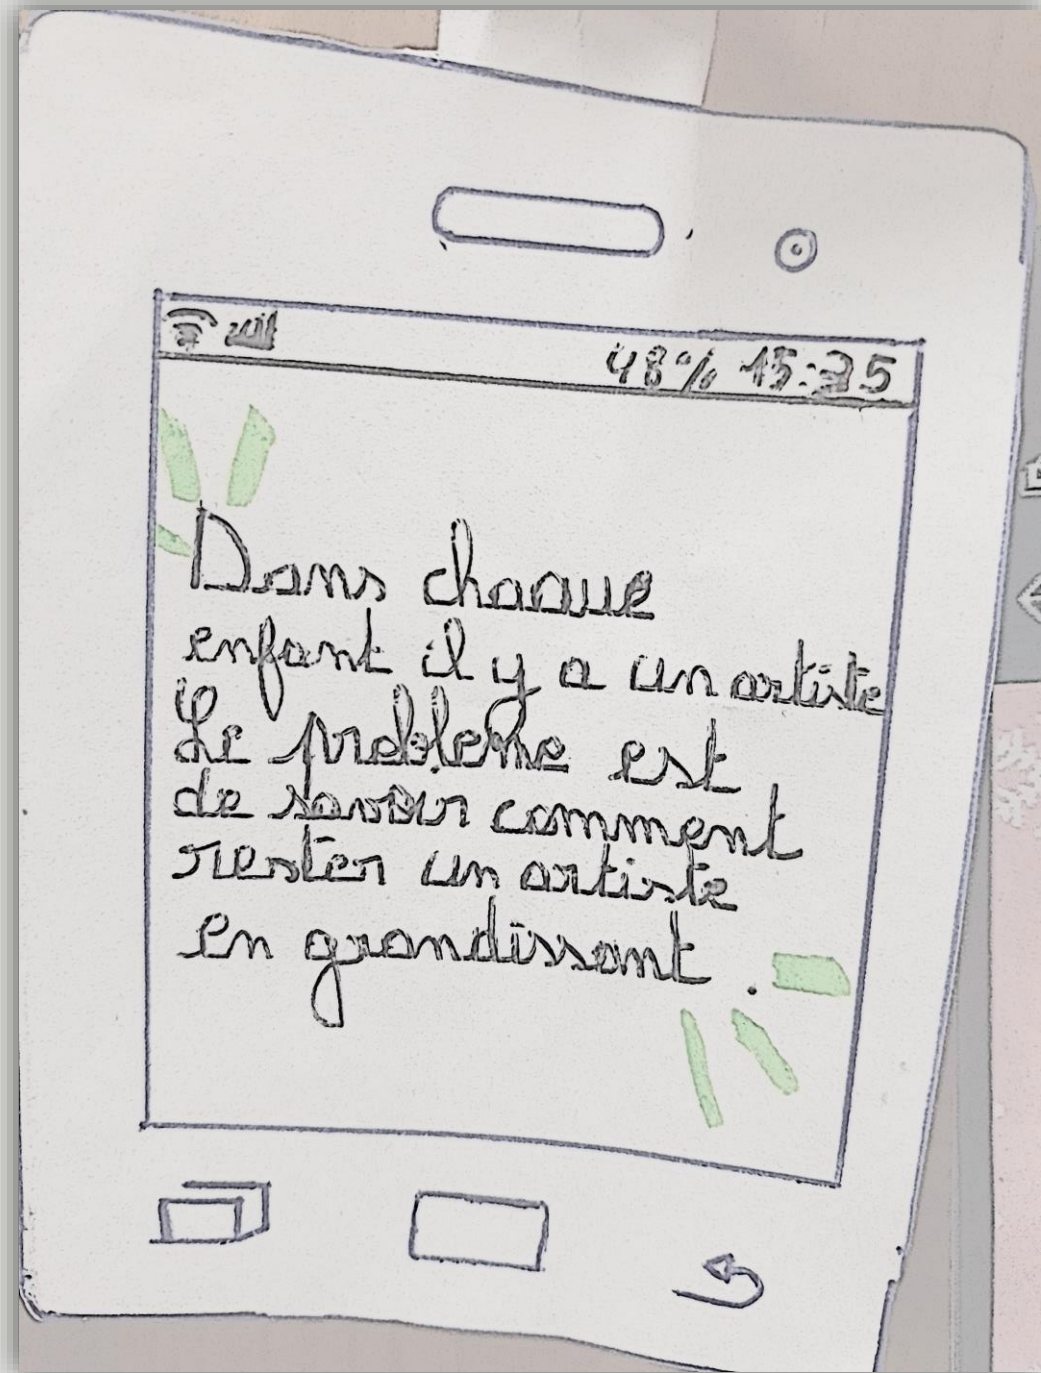 48% 15:35
Dans chaque
enfant il y a un artiste
Le probleme est
de savoir comment
rester un artiste
en grandissant.